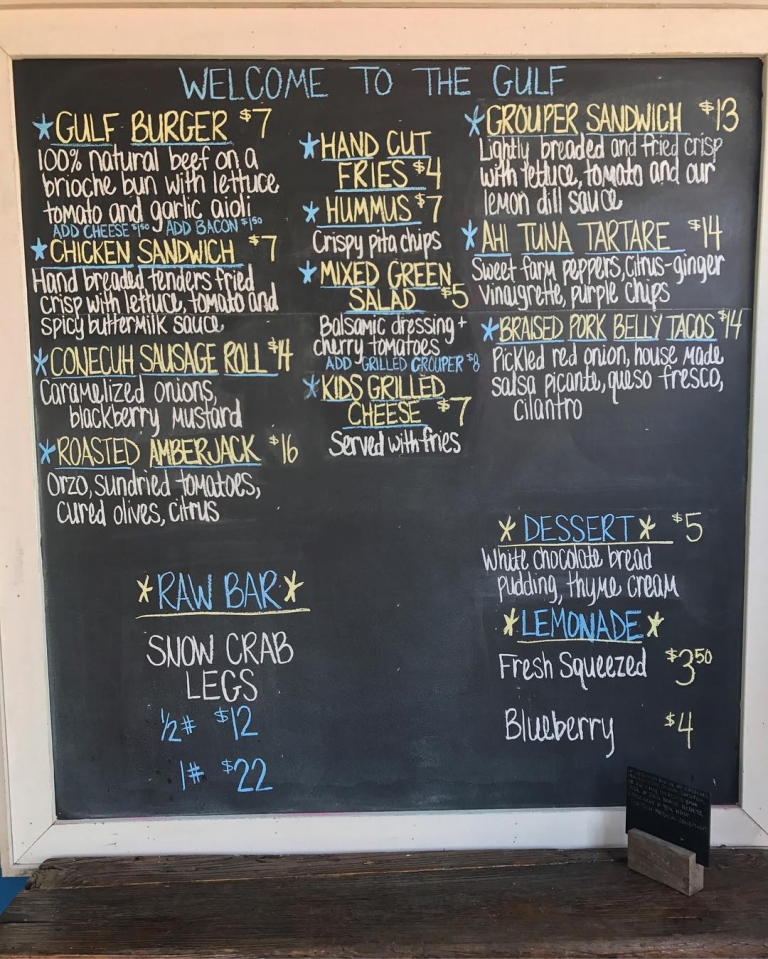 WELCOME TO THE GULF
*GULF BURGER $7
100% natural beef on a
brioche bun with lettuce
tomato and garlic aioli
ADD CHEESE $1.50 ADD BACON $1.50
*CHICKEN SANDWICH $7
Hand breaded tenders fried
crisp with lettuce, tomato and
spicy buttermilk sauce
*CONECUH SAUSAGE ROLL $14
Caramelized onions,
blackberry mustard
*ROASTED AMBERJACK $16
Orzo, sundried tomatoes,
cured olives, citrus
*RAW BAR*
SNOW CRAB
LEGS
1/2# $12
1# $22
*HAND CUT
FRIES $4
*HUMMUS $7
Crispy pita chips
*MIXED GREEN
SALAD $5
Balsamic dressing +
cherry tomatoes
ADD GRILLED GROUPER $8
*KIDS GRILLED
CHEESE $7
Served with fries
*GROUPER SANDWICH $13
Lightly breaded and fried crisp
with lettuce, tomato and our
lemon dill sauce
*AHI TUNA TARTARE $14
Sweet farm peppers, citrus-ginger
vinaigrette, purple chips
*BRAISED PORK BELLY TACOS $14
Pickled red onion, house made
salsa picante, queso fresco,
cilantro
*DESSERT* $5
White chocolate bread
pudding, thyme cream
*LEMONADE*
Fresh Squeezed $3.50
Blueberry $4